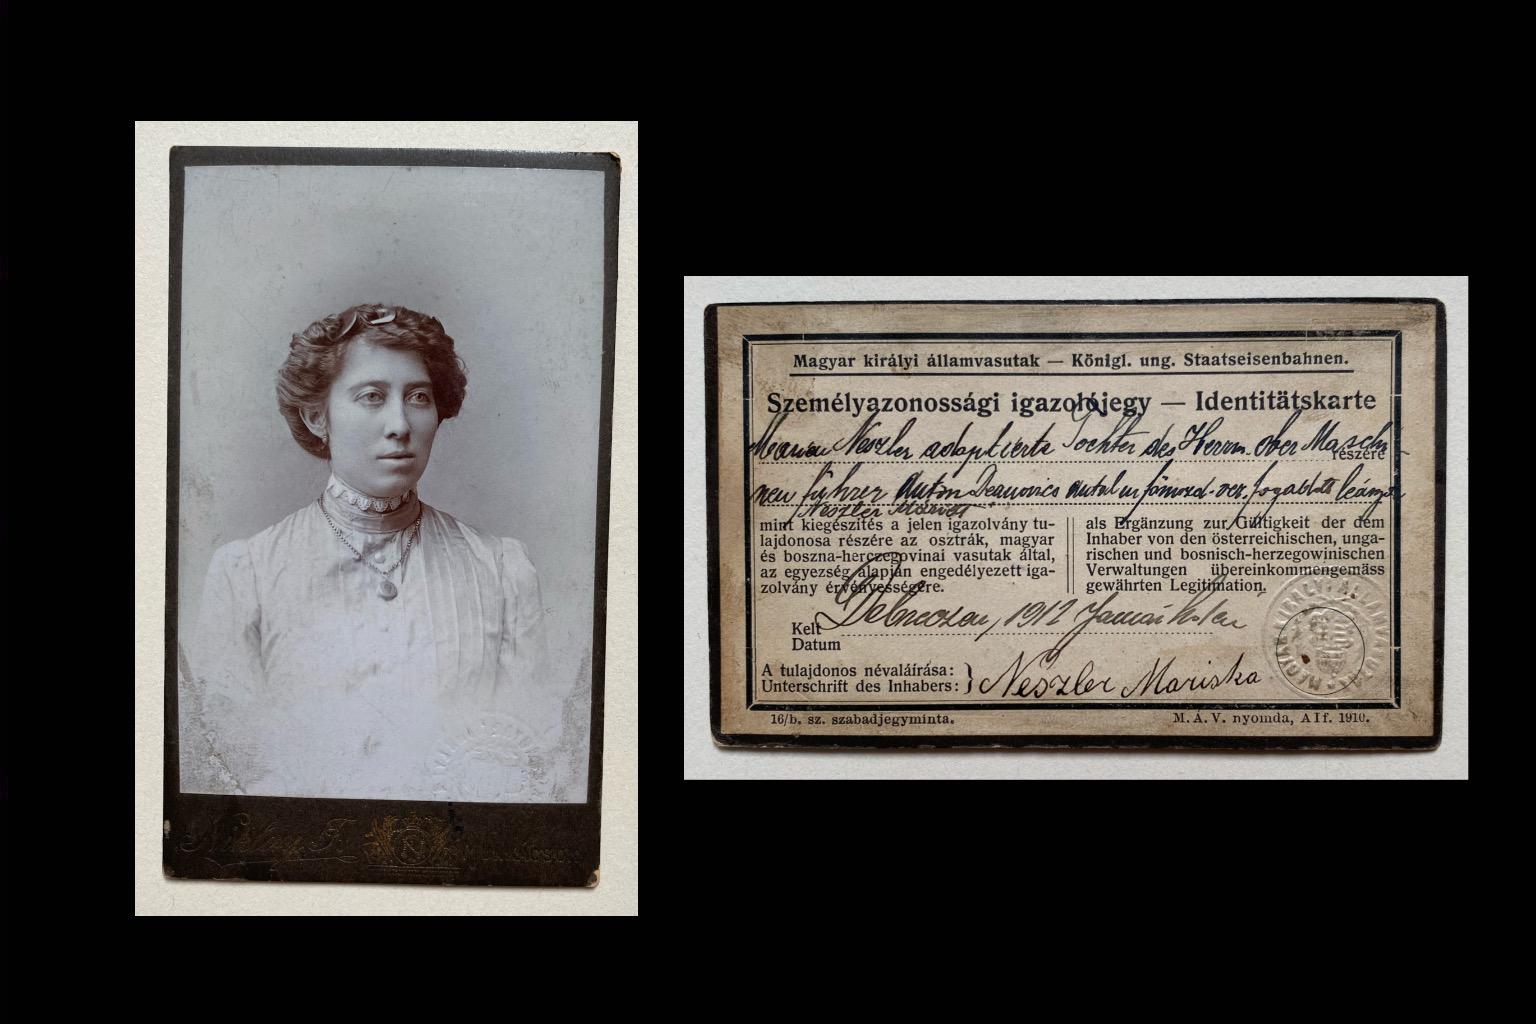 N
Magyar királyi államvasutak — Königl. ung. Staatseisenbahnen.
Személyazonossági igazolójegy — Identitätskarte
Neszler adoptierte Tochter des Herrn ober Maschi-
részére
nen führer Anton Deanovics antal m fogadott leánya
Neszler
mint kiegészítés a jelen igazolvány tu-
lajdonosa részére az osztrák, magyar
és boszna-herczegovinai vasutak által,
az egyezség alapján engedélyezett iga-
zolvány érvényességére.
als Ergänzung zur Gültigkeit der dem
Inhaber von den österreichischen, unga-
rischen und bosnisch-herzegowinischen
Verwaltungen übereinkommengemäss
gewährten Legitimation.
Kelt Debreczen, 1912
Datum
A tulajdonos névaláírása:
Unterschrift des Inhabers: } Neszler Mariska
16/b. sz. szabadjegyminta.
M. Á. V. nyomda, AIf. 1910.